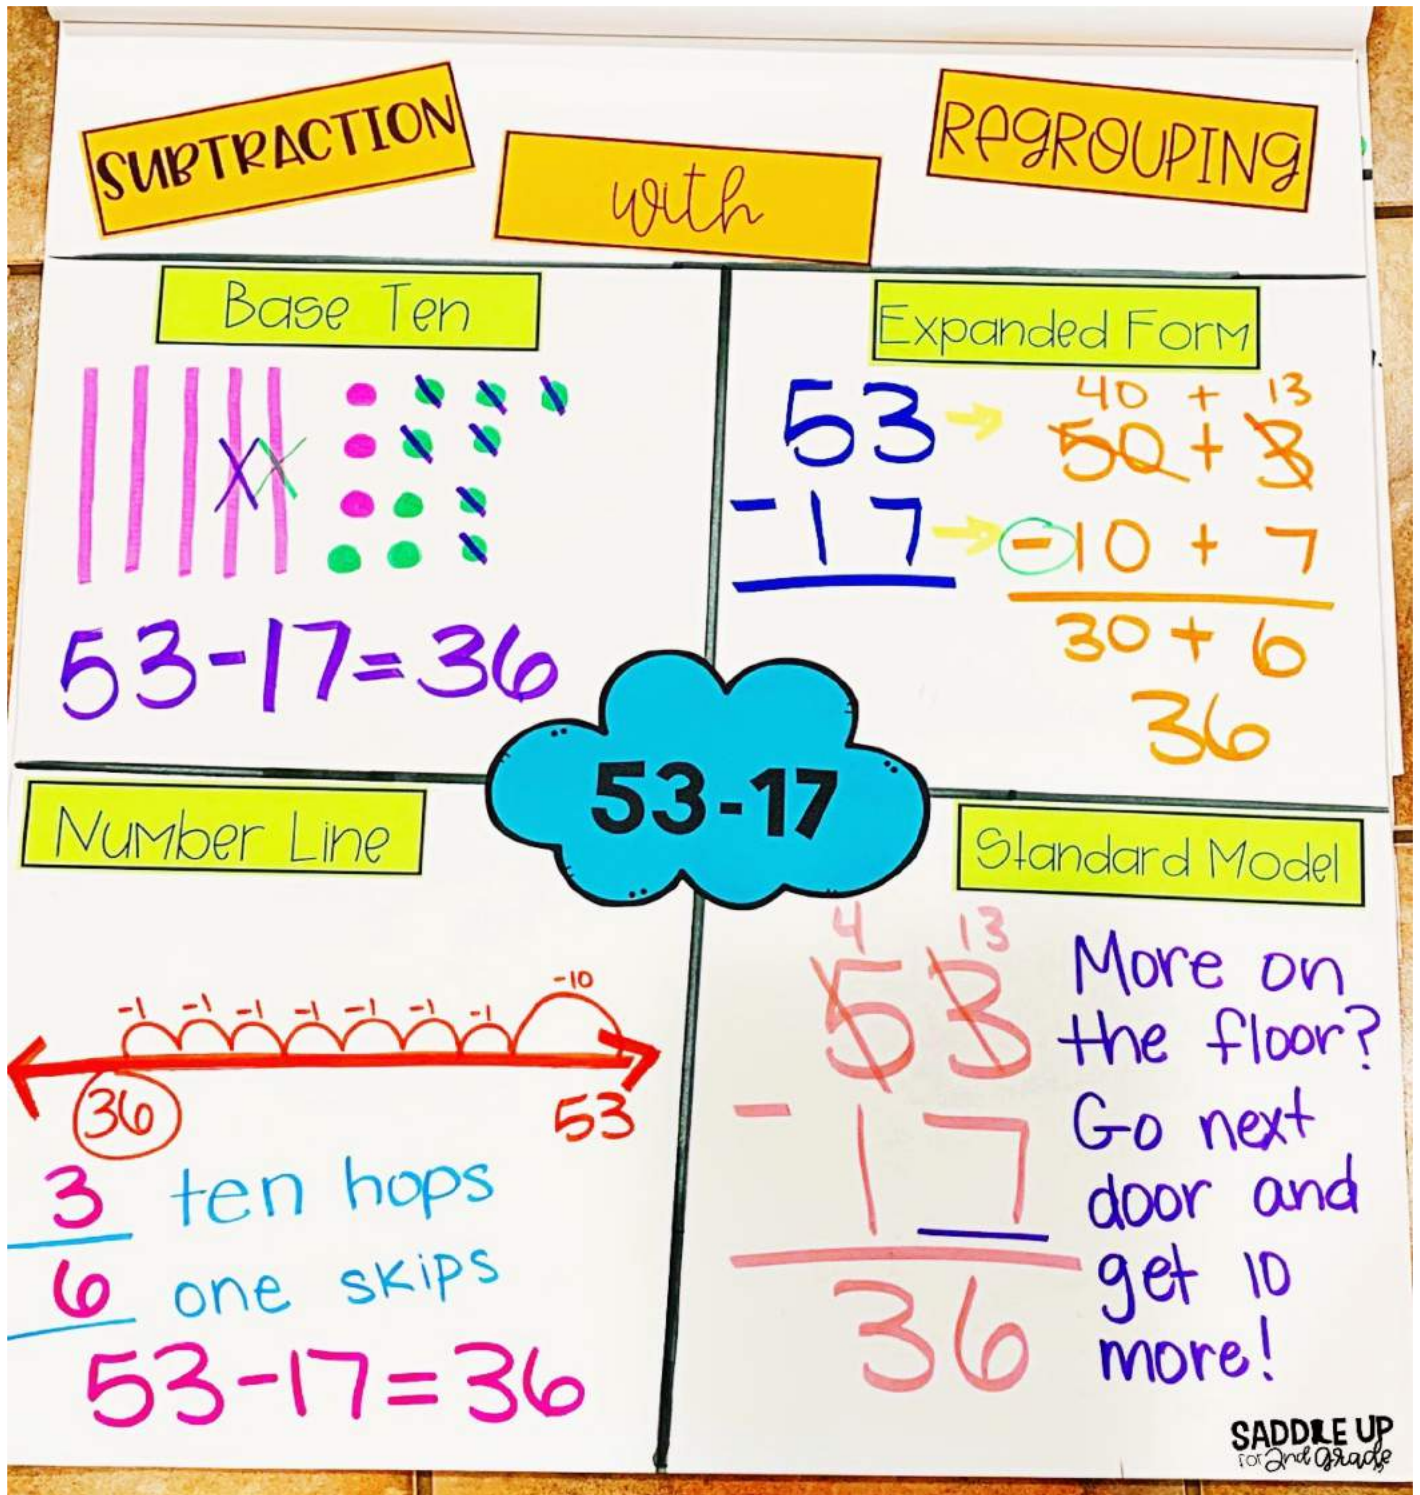 SUBTRACTION
with
REGROUPING
Base Ten
53-17=36
Expanded Form
40 + 13
53 → 50 + 3
-17 → -10 + 7
30 + 6
36
53-17
Number Line
-1 -1 -1 -1 -1 -1 -1 -10
36 53
3 ten hops
6 one skips
53-17=36
Standard Model
4 13
53
- 17
36
More on
the floor?
Go next
door and
get 10
more!
SADDLE UP
for 2nd grade